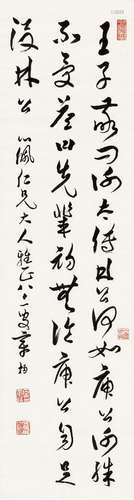 王子敬問謝太傅林公何如庾公謝殊
不受答曰先輩初無論庾公自足
沒林公 佩仁兄大人雅正八